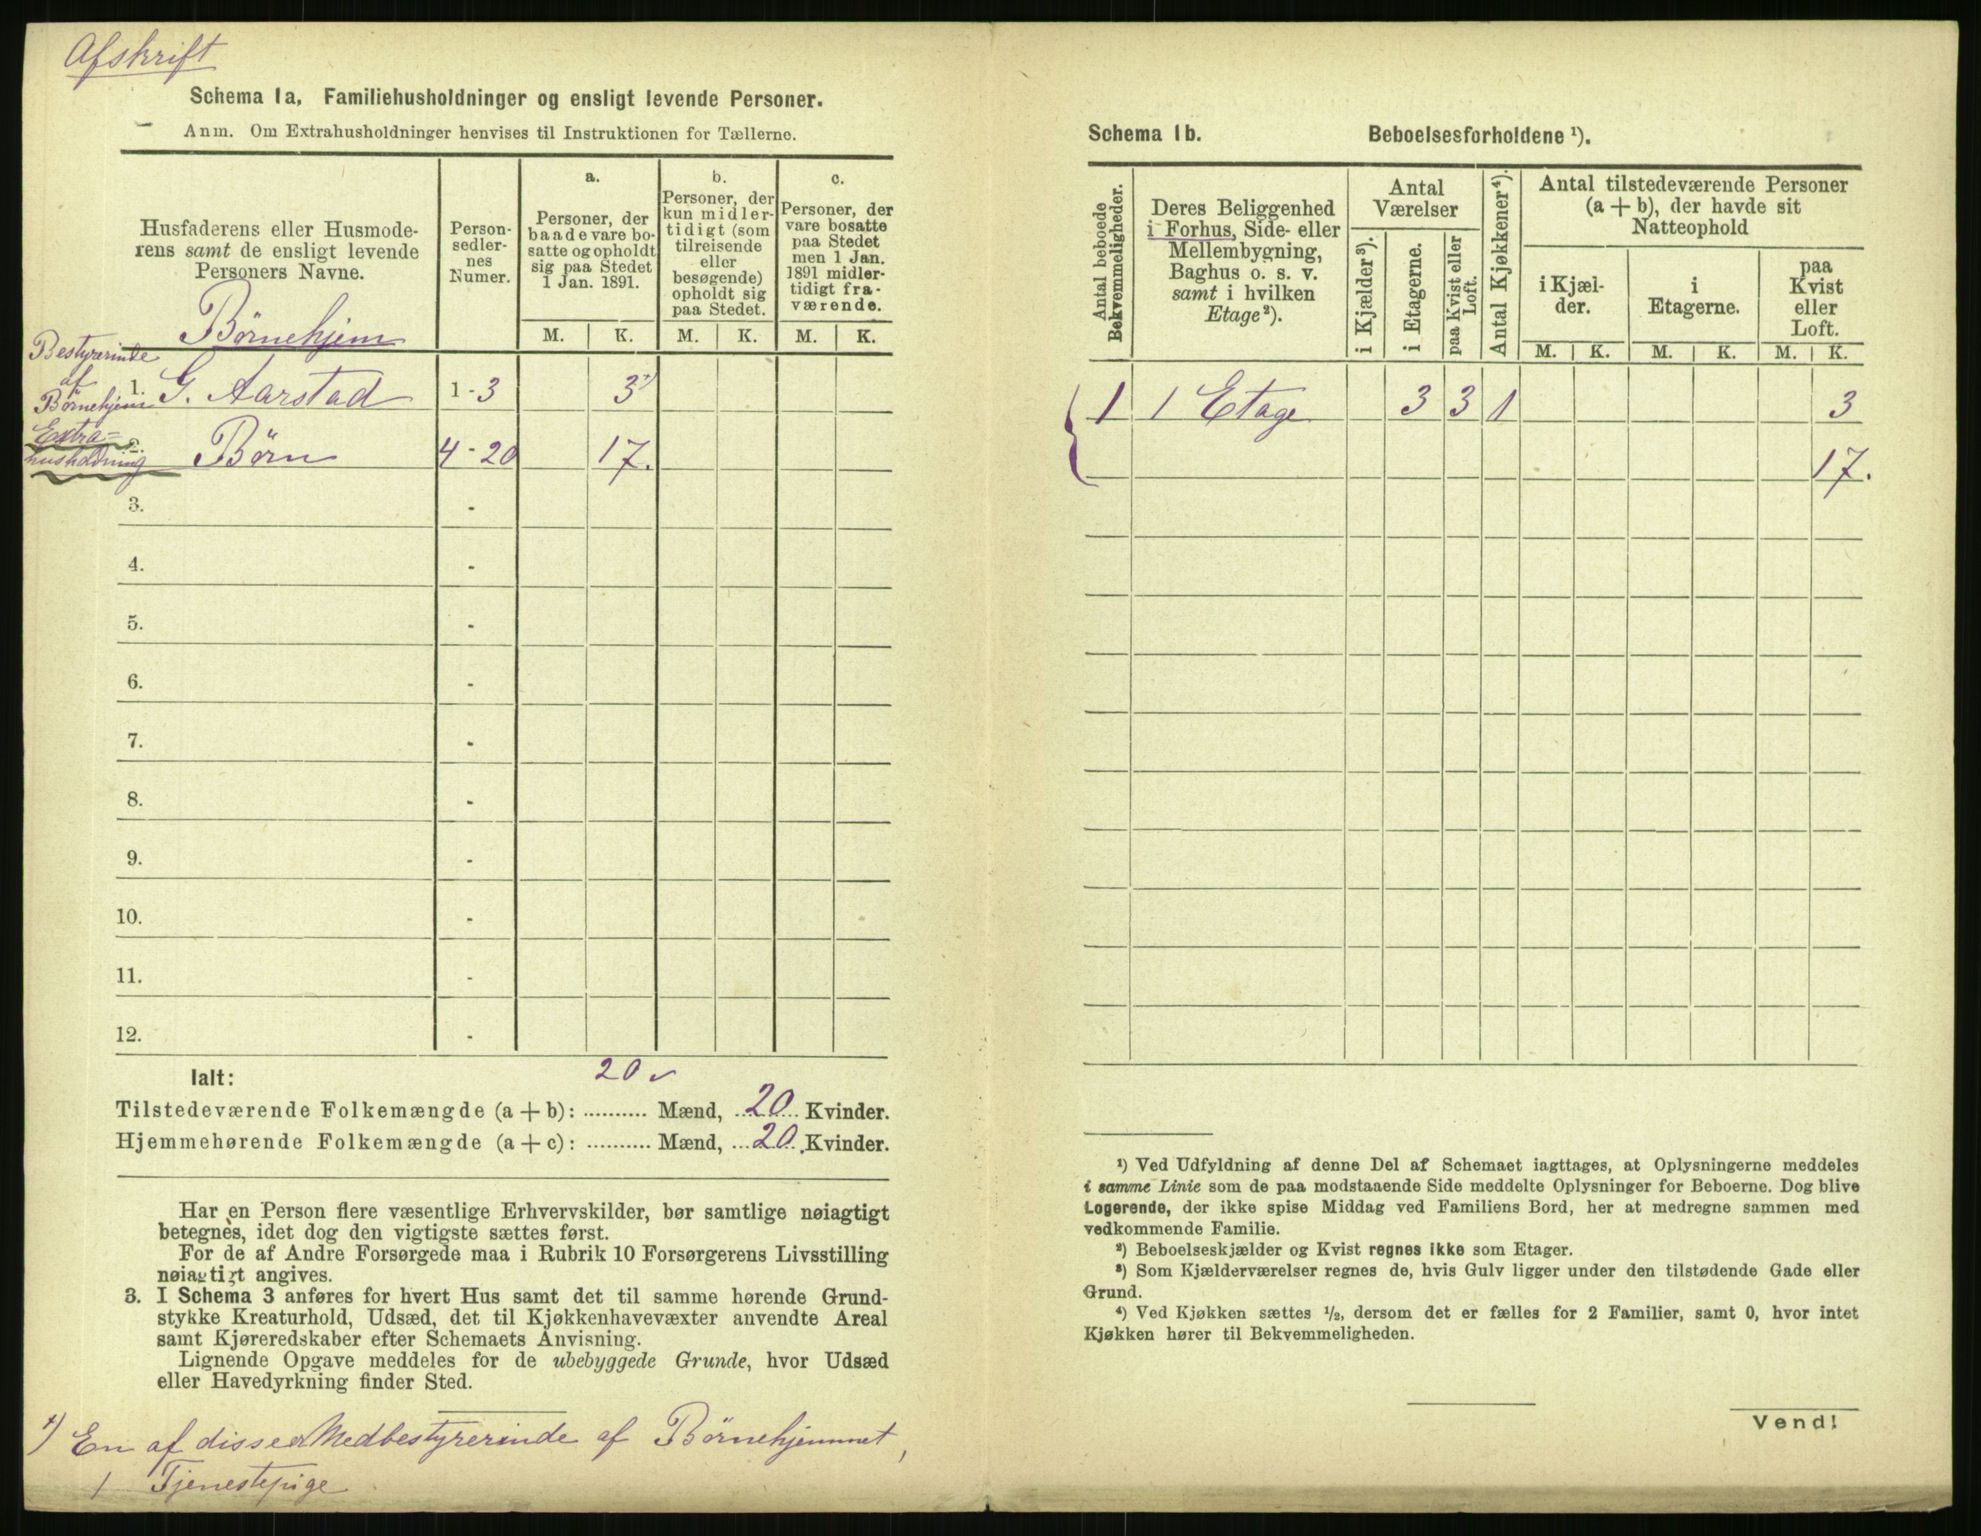 Afskrift
Schema 1a, Familiehusholdninger og ensligt levende Personer.
Anm. Om Extrahusholdninger henvises til Instruktionen for Tællerne.
Husfaderens eller Husmode-
rens samt de ensligt levende
Personers Navne.
Person-
sedler-
nes
Numer.
a.
Personer, der
baade vare bo-
satte og opholdt
sig paa Stedet
1 Jan. 1891.
b.
Personer, der
kun midler-
tidigt (som
tilreisende
eller
besøgende)
opholdt sig
paa Stedet.
c.
Personer, der
vare bosatte
paa Stedet
men 1 Jan.
1891 midler-
tidigt fra-
værende.
M. K. M. K. M. K.
Børnehjem
Bestyrerinde
af
Børnehjem
1. G. Aarstad 1-3 3
Extra=
husholdning
2. Børn 4-20 17.
3. -
4. -
5. -
6. -
7. -
8. -
9. -
10. -
11. -
12. -
Ialt: 20 ✓
Tilstedeværende Folkemængde (a + b): .......... Mænd, 20 Kvinder.
Hjemmehørende Folkemængde (a + c): .......... Mænd, 20 Kvinder.
Har en Person flere væsentlige Erhvervskilder, bør samtlige nøiagtigt
betegnes, idet dog den vigtigste sættes først.
For de af Andre Forsørgede maa i Rubrik 10 Forsørgerens Livsstilling
nøiagtigt angives.
3. I Schema 3 anføres for hvert Hus samt det til samme hørende Grund-
stykke Kreaturhold, Udsæd, det til Kjøkkenhavevæxter anvendte Areal
samt Kjøreredskaber efter Schemaets Anvisning.
Lignende Opgave meddeles for de ubebyggede Grunde, hvor Udsæd
eller Havedyrkning finder Sted.
+) En af disse Medbestyrerinde af Børnehjemmet,
1 Tjenestepige
Schema 1b. Beboelsesforholdene ¹).
Antal beboede
Bekvemmeligheder.
Deres Beliggenhed
i Forhus, Side- eller
Mellembygning,
Baghus o. s. v.
samt i hvilken
Etage²).
Antal
Værelser
i Kjælder³).
i Etagerne.
paa Kvist eller
Loft.
Antal Kjøkkener⁴).
Antal tilstedeværende Personer
(a + b), der havde sit
Natteophold
i Kjæl-
der.
i
Etagerne.
paa
Kvist
eller
Loft.
M. K. M. K. M. K.
1 1 Etage 3 3 1 3
17.
¹) Ved Udfyldning af denne Del af Schemaet iagttages, at Oplysningerne meddeles
i samme Linie som de paa modstaaende Side meddelte Oplysninger for Beboerne. Dog blive
Logerende, der ikke spise Middag ved Familiens Bord, her at medregne sammen med
vedkommende Familie.
²) Beboelseskjælder og Kvist regnes ikke som Etager.
³) Som Kjælderværelser regnes de, hvis Gulv ligger under den tilstødende Gade eller
Grund.
⁴) Ved Kjøkken sættes ½, dersom det er fælles for 2 Familier, samt 0, hvor intet
Kjøkken hører til Bekvemmeligheden.
Vend!